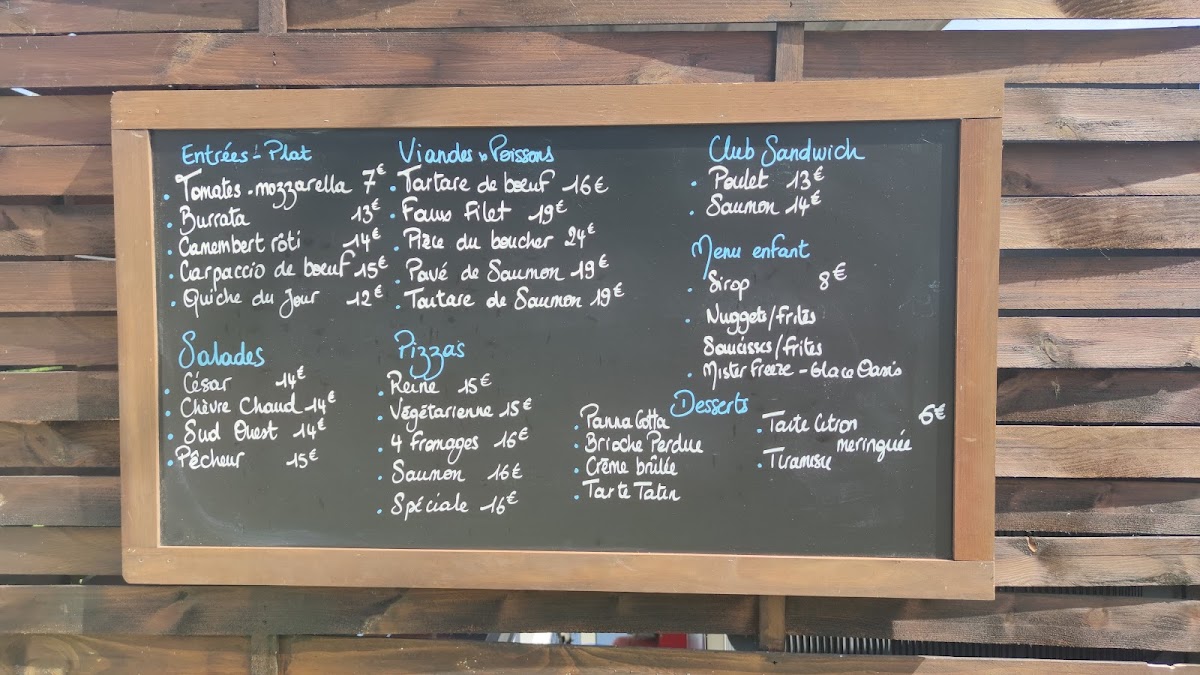 Entrées - Plat
. Tomates - mozzarella 7€
. Burrata 13€
. Camembert rôti 14€
. Carpaccio de boeuf 15€
. Quiche du Jour 12€
Salades
. César 14€
. Chèvre Chaud 14€
. Sud Ouest 14€
. Pêcheur 15€
Viandes " Poissons
. Tartare de boeuf 16€
. Faux Filet 19€
. Pièce du boucher 24€
. Pavé de Saumon 19€
. Tartare de Saumon 19€
Pizzas
. Reine 15€
. Végétarienne 15€
. 4 fromages 16€
. Saumon 16€
. Spéciale 16€
Club Sandwich
. Poulet 13€
. Saumon 14€
Menu enfant
. Sirop 8€
. Nuggets/frites
Saucisses/frites
. Mister Freeze - Glace Oasis
Desserts 6€
. Panna Cotta
. Brioche Perdue
. Crème brûlée
. Tarte Tatin
. Tarte Citron
meringuée
. Tiramisu